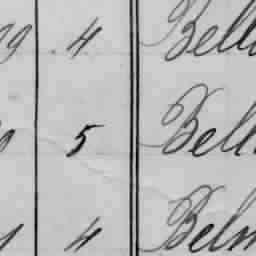 29 4 Bell
5 Bell
4 Belm